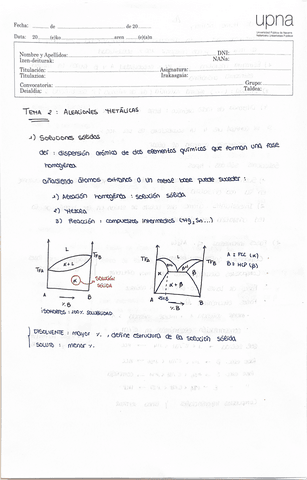 Fecha: de de 20
Data: 20 (e)ko aren (e)(a)n
upna
Nombre y Apellidos:
Izen-deiturak:
DNI:
NANa:
Titulación:
Titulazioa:
Asignatura:
Irakasgaia:
Convocatoria:
Deialdia:
Grupo:
Taldea:
TEMA 2 : ALEACIONES METÁLICAS
1) Soluciones sólidas
def : dispersión atómica de dos elementos químicos que forman una fase
homogénea
añadiendo átomos extraños a un metal base puede suceder :
1) Aleación homogénea : solución sólida
2) Mezcla
3) Reacción : compuestos intermedios (Mg₂Sn...)
L
TFB
α + L
TFA
α
SOLUCIÓN
SÓLIDA
A
B
% B
100% SOLUBILIDAD
TFA
L
TFB
α
β
α + β
A
B
% B
A = FCC (α)
B = HCP (β)
DISOLVENTE : mayor %. , define estructura de la solución sólida
SOLUTO : menor %.